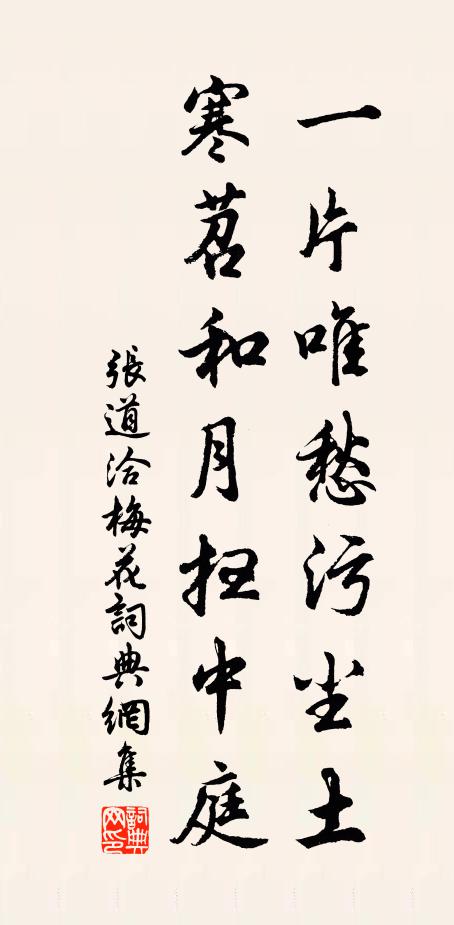 一片唯愁污尘土
寒苕和月扫中庭
張道洽梅花詞典網集
詞典
网印